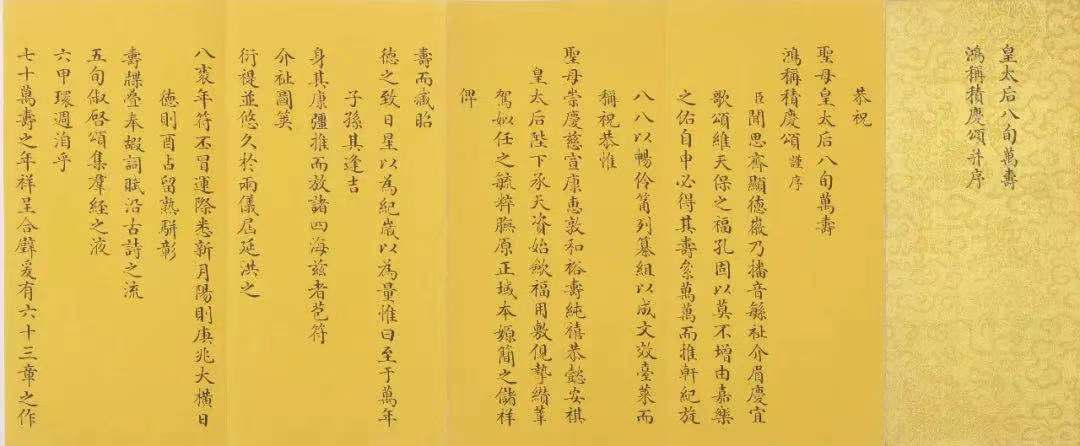 皇太后八旬萬壽
鴻稱積慶頌并序
恭祝
聖母皇太后八旬萬壽
鴻稱積慶頌謹序
臣聞思齊顯德徽乃播音緐祉介眉慶宜
歌頌維天保之福孔固以莫不增由嘉樂
之佑自申必得其壽絫萬萬而推軒紀旋
八八以暢伶筩列纂組以成文效臺萊而
稱祝恭惟
聖母崇慶慈宣康惠敦和裕壽純禧恭懿安祺
皇太后陛下承天資始歛福用敷俔摯纘莘
駕姒任之毓粹膴原正域本嫄簡之儲祥
俾
壽而臧眙
德之致日星以為紀歲以為量惟曰至于萬年
子孫其逢吉
身其康彊推而放諸四海茲者苞符
介祉圖筴
衍禔並悠久於兩儀屆延洪之
八袠年符丕冒運際悉新月陽則庚兆大橫日
德則酉占留孰駢彰
壽牒疊奉嘏詞賦沿古詩之流
五旬俶啓頌集羣經之液
六甲環週洎乎
七十萬壽之年祥呈合璧爰有六十三章之作